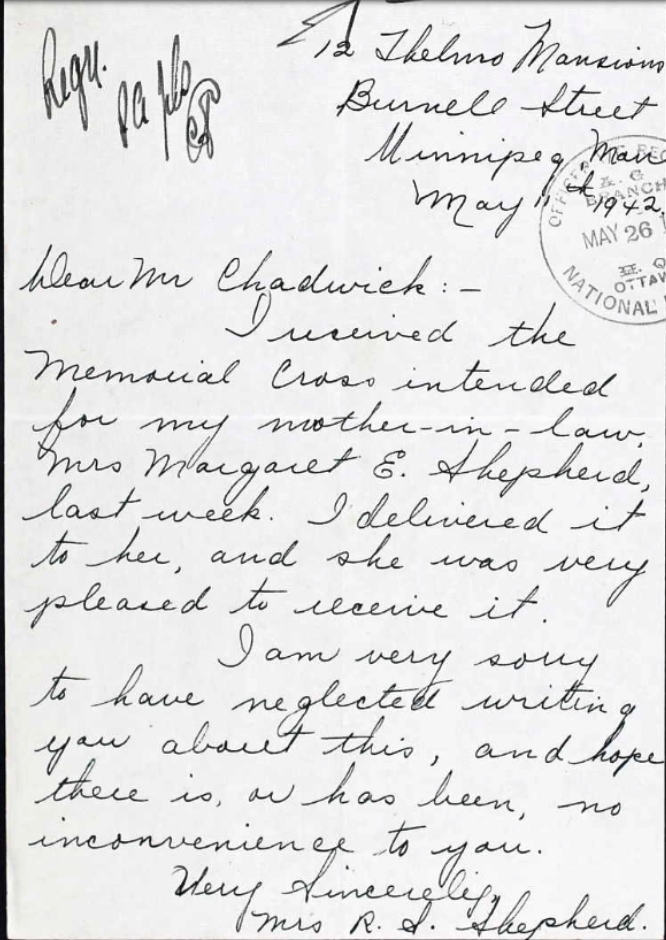 Regy.
PA
12 Thelmo Mansions
Burnell Street
Winnipeg Man
May 11th 1942.
OFFICER I/C REC
A. G.
BRANCH
MAY 26 1
H. Q.
OTTAW
NATIONAL
Dear Mr Chadwick:-
I received the
Memorial Cross intended
for my mother-in-law,
Mrs Margaret E. Shepherd,
last week. I delivered it
to her, and she was very
pleased to receive it.
I am very sorry
to have neglected writing
you about this, and hope
there is, or has been, no
inconvenience to you.
Very Sincerely,
Mrs R. S. Shepherd.